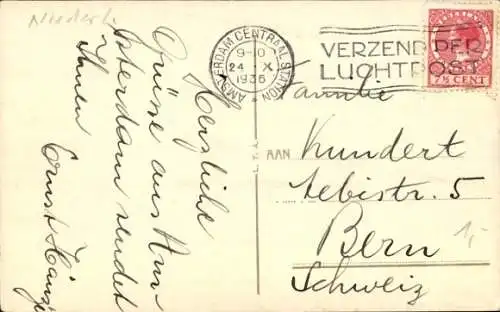 Niederl.
Herzliche
Grüsse aus Am-
sterdam sendet
Ihnen
Ernst
AMSTERDAM CENTRAAL STATION
9-10
24 X
1936
VERZEND PER
LUCHTPOST
NEDERLAND
7½ CENT
Familie
AAN
Kundert
Aebistr. 5
Bern
Schweiz
1,-